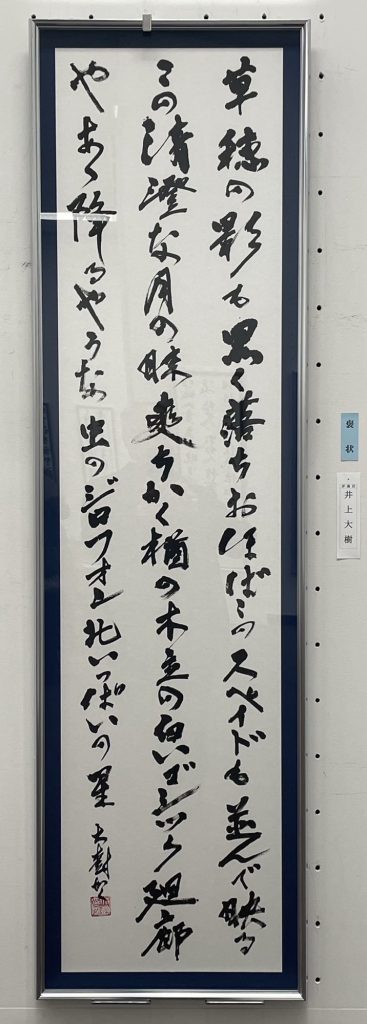 草穂の影も黒く落ちおほばこのスペイドも並んで映る
この清澄な月の昧爽ちかく楢の木立の白いゴシック廻廊
やあゝ降るやうな虫のジロフオン北いっぱいの星
大樹かく
褒状
井上大樹